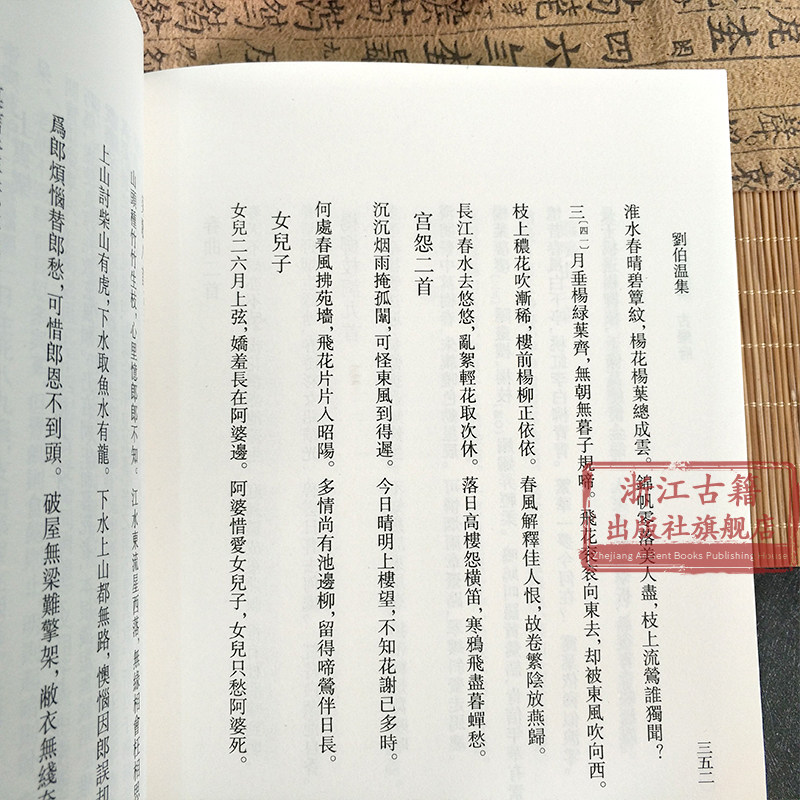 劉伯温集
淮水春晴碧簟紋，楊花楊葉總成雲。錦帆零落美人盡，枝上流鶯誰獨聞？
三〔四一〕月垂楊緑葉齊，無朝無暮子規啼。飛花衮衮向東去，却被東風吹向西。
枝上穠花吹漸稀，樓前楊柳正依依。春風解釋佳人恨，故卷繁陰放燕歸。
長江春水去悠悠，亂絮輕花取次休。落日高樓怨横笛，寒鴉飛盡暮蟬愁。
宫怨二首
沉沉烟雨掩孤闈，可怪東風到得遲。今日晴明上樓望，不知花謝已多時。
何處春風拂苑墻，飛花片片入昭陽。多情尚有池邊柳，留得啼鶯伴日長。
女兒子
女兒二六月上弦，嬌羞長在阿婆邊。阿婆惜愛女兒子，女兒只愁阿婆死。
三五二
山頭種竹竹生枝，心里憶郎郎不知。江水東流星西落，無緣和會
上山討柴山有虎，下水取魚水有龍。下水上山都無路，懊惱因郎誤
爲郎煩惱替郎愁，可惜郎恩不到頭。破屋無梁難擎架，敝衣無綫
浙江古籍
出版社旗舰店
Zhejiang Ancient Books Publishing House